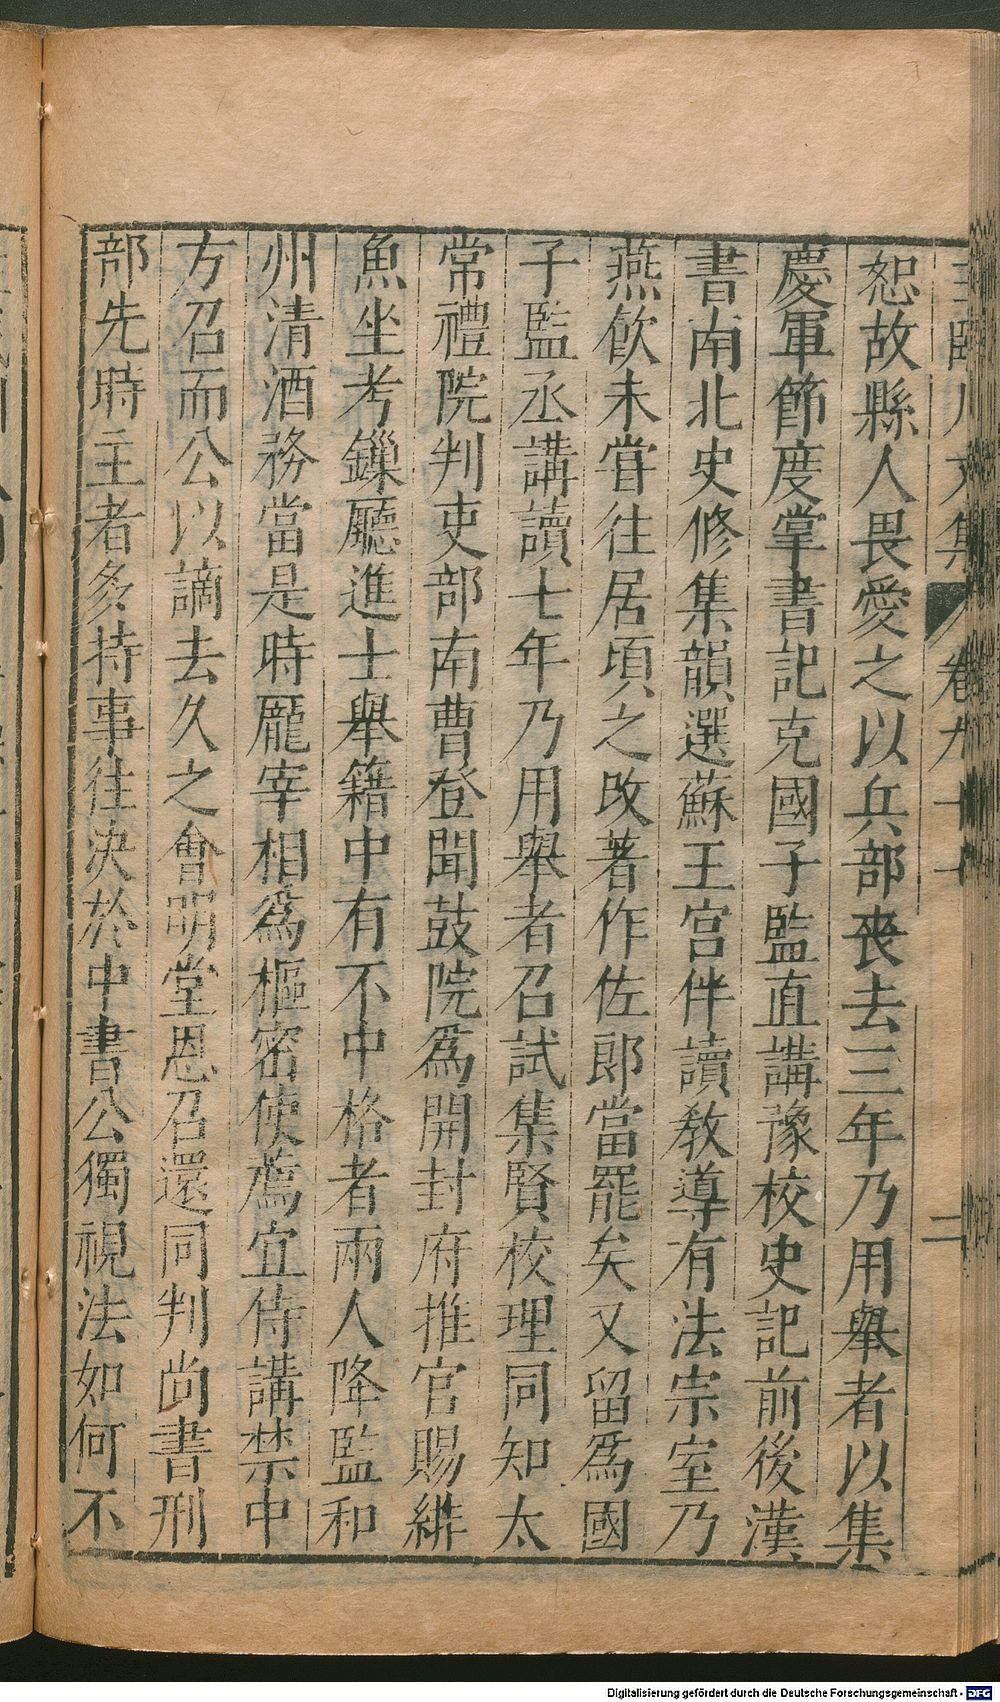 恕故縣人畏愛之以兵部丧去三年乃用舉者以集
慶軍節度掌書記充國子監直講豫校史記前後漢
書南北史修集韻選蘇王宫伴讀敎導有法宗室乃
燕飲未甞往居頃之改著作佐郎當罷矣又留爲國
子監丞講讀七年乃用舉者召試集賢校理同知太
常禮院判吏部南曹登聞鼓院爲開封府推官賜緋
魚坐考鏁廳進士舉籍中有不中格者兩人降監和
州清酒務當是時龎宰相爲樞密使薦宜侍講禁中
方召而公以謫去久之會明堂恩召還同判尚書刑
部先時主者多持事往决於中書公獨視法如何不
文集
卷九十
二
Digitalisierung gefördert durch die Deutsche Forschungsgemeinschaft - DFG